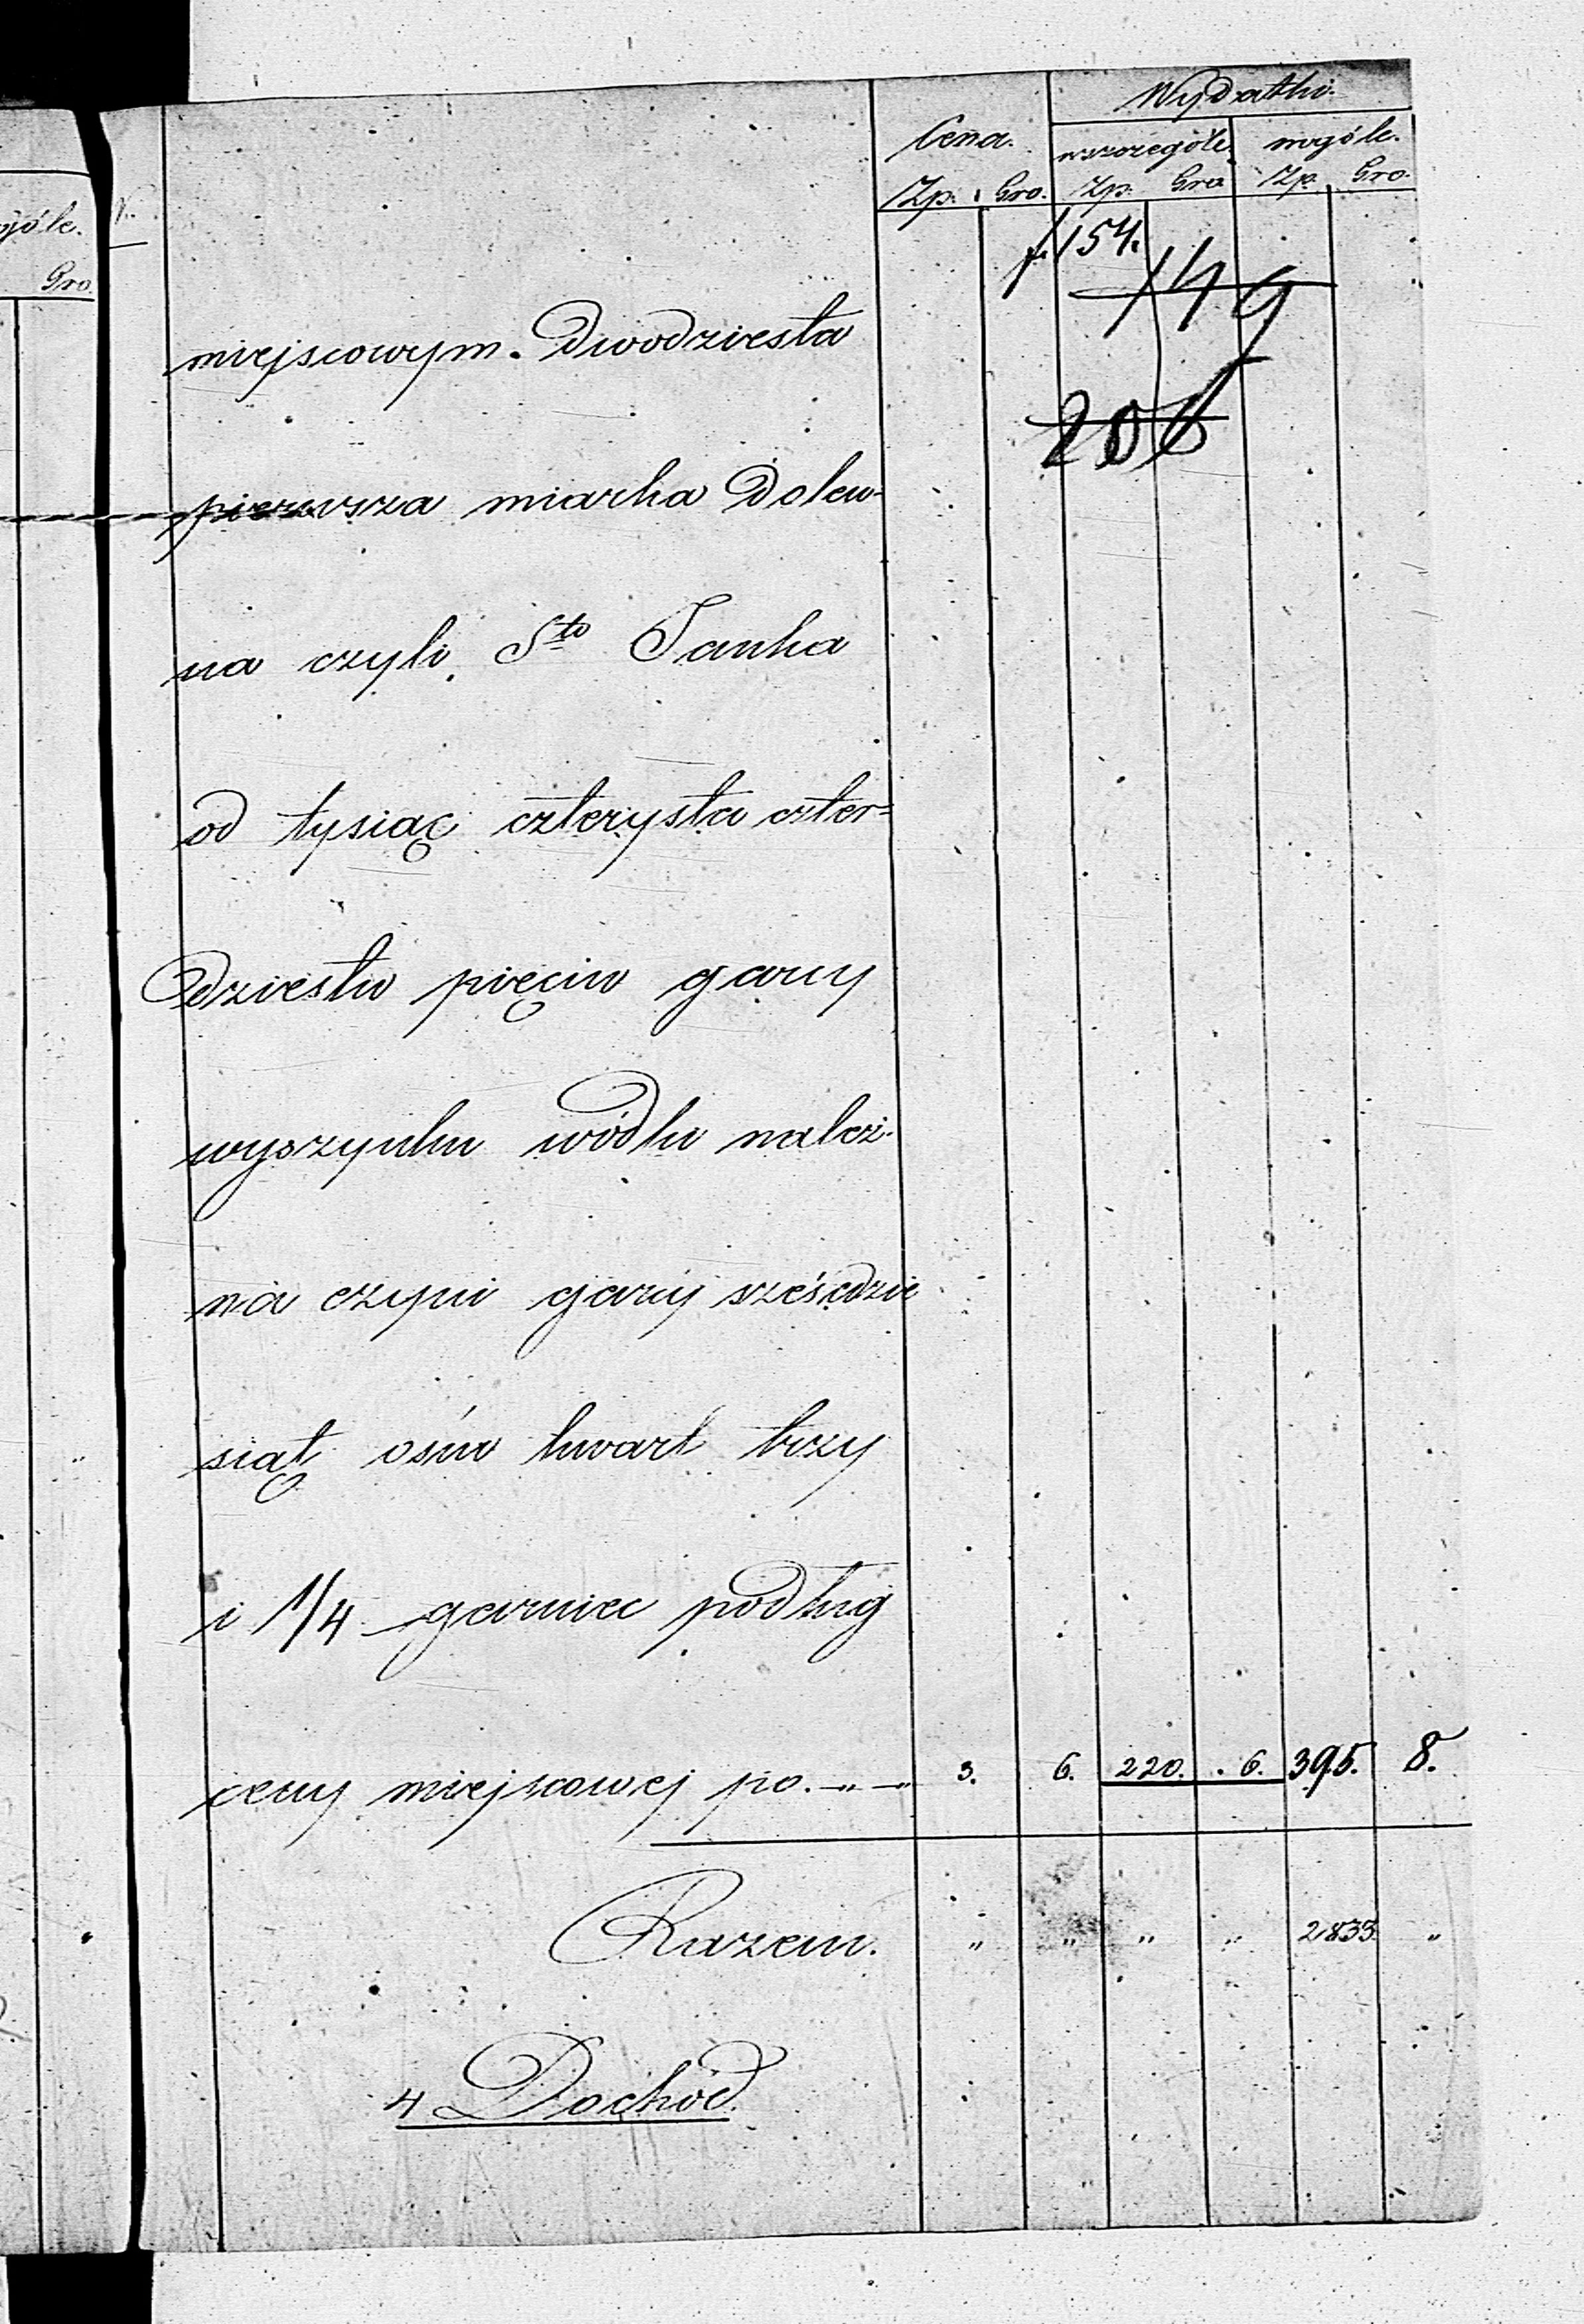 Wydatki.
Cena. wszczególe. wogóle.
Zp. Gro. Zp. Gro Zp. Gro.
ogóle.
Gro.
N.
f. 154.
149
206
miejscowym. Dwódziesta
pierwsza miarka Dolew-
na czyli Sto Janka
od tysiąc czterysta czter=
dziestu pięciu garcy
wyszynku wódki należ-
na czyni garcy sześćdzie
siąt ośm kwart trzy
i 1/4 garniec podług
ceny miejscowej po. -„- -„ 3. 6. 220. 6. 395. 8.
Razem. „ „ „ „ 2833 „
4 Dochód.